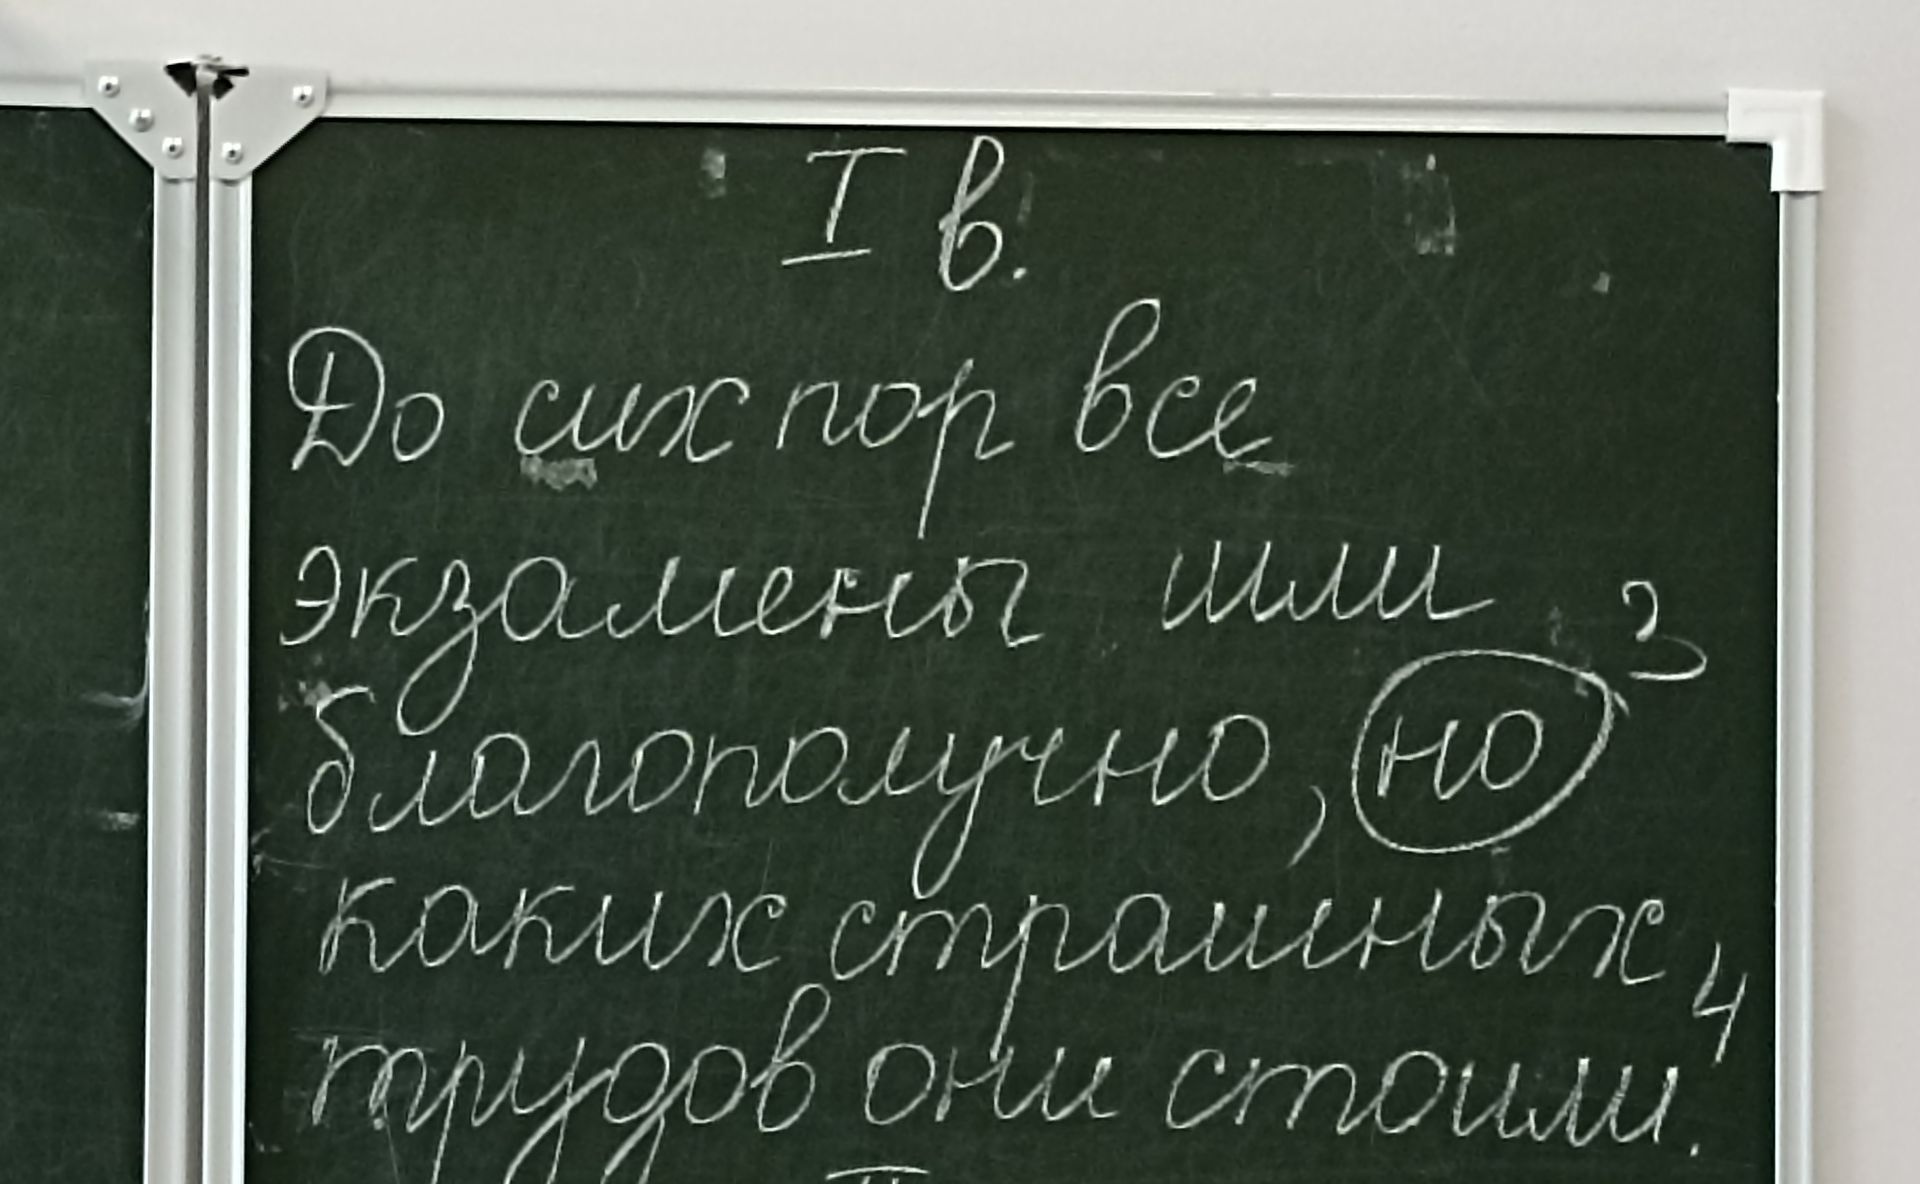 I в.
До сих пор все
экзамены шли 3
благополучно, но
каких страшных 4
трудов они стоили.
II